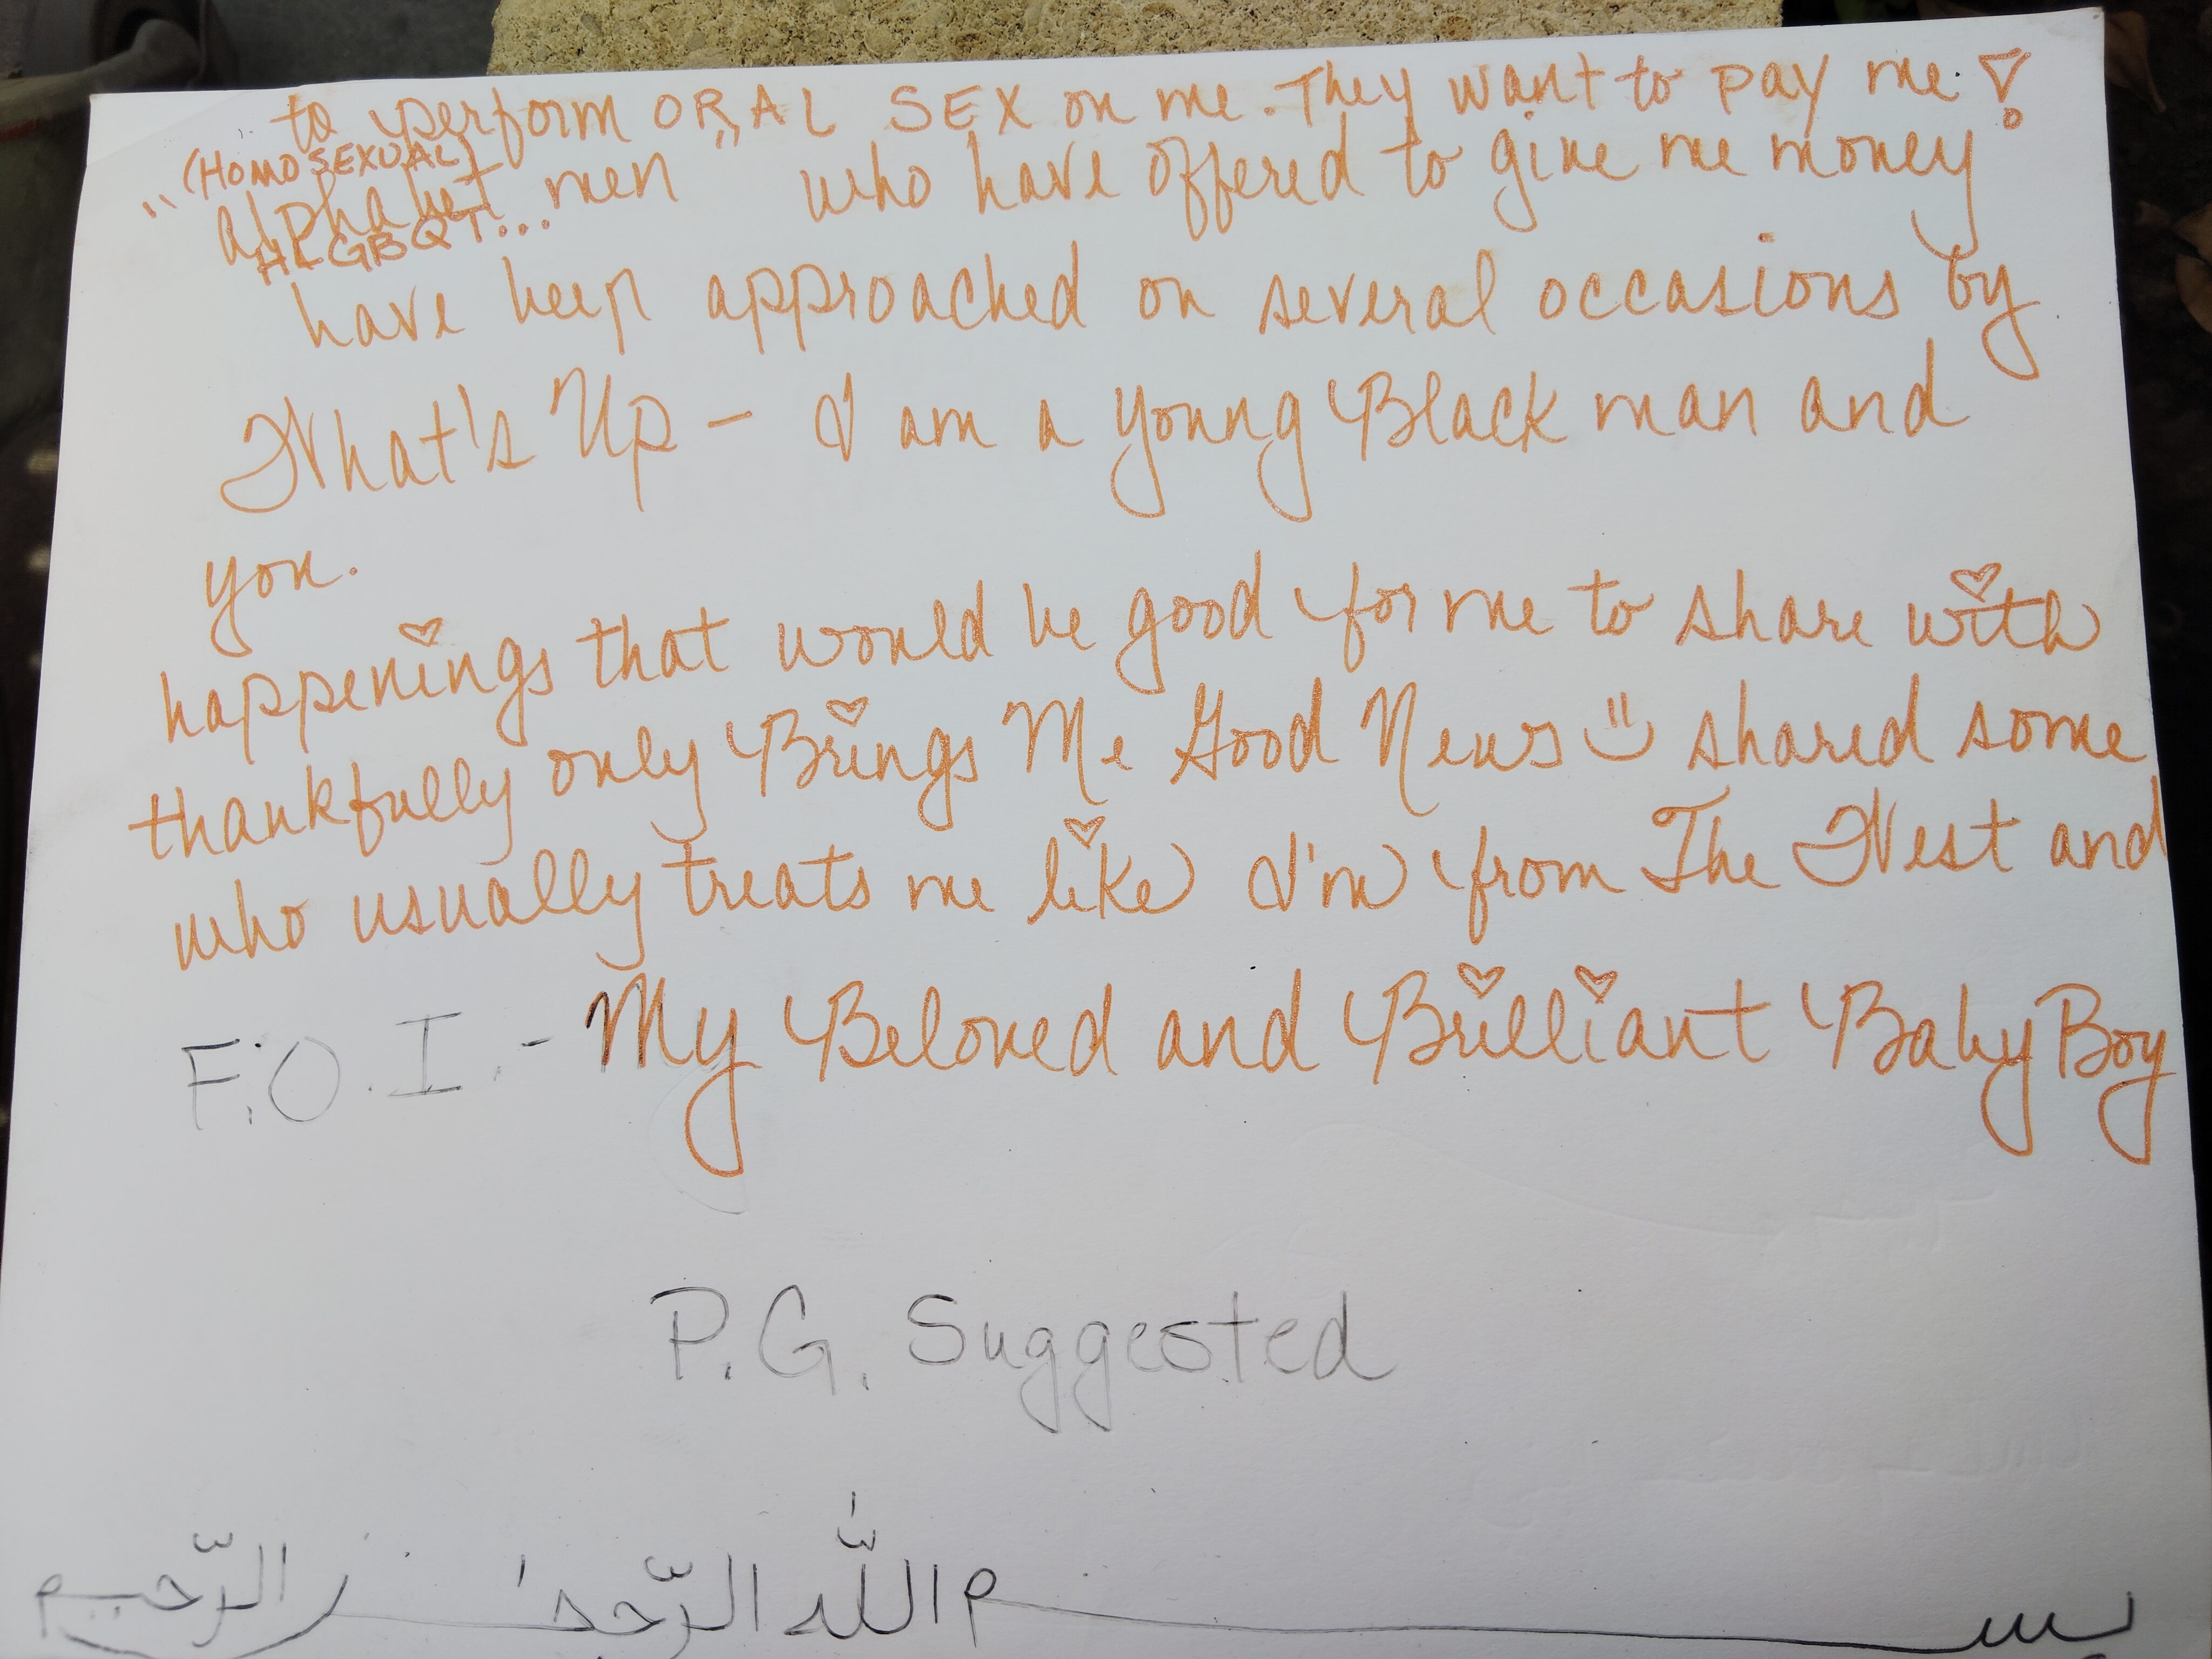 بسم اللّٰه الرّحمٰن الرّحيم
P.G. Suggested
F.O.I. - My Beloved and Brilliant Baby Boy
who usually treats me like I'm from The West and
thankfully only Brings Me Good News shared some
happenings that would be good for me to share with
you.
What's Up - I am a young Black man and
have been approached on several occasions by
(HOMOSEXUAL)
"alphabet men" who have offered to give me money
HLGBQT...
to perform ORAL SEX on me. They want to pay me!